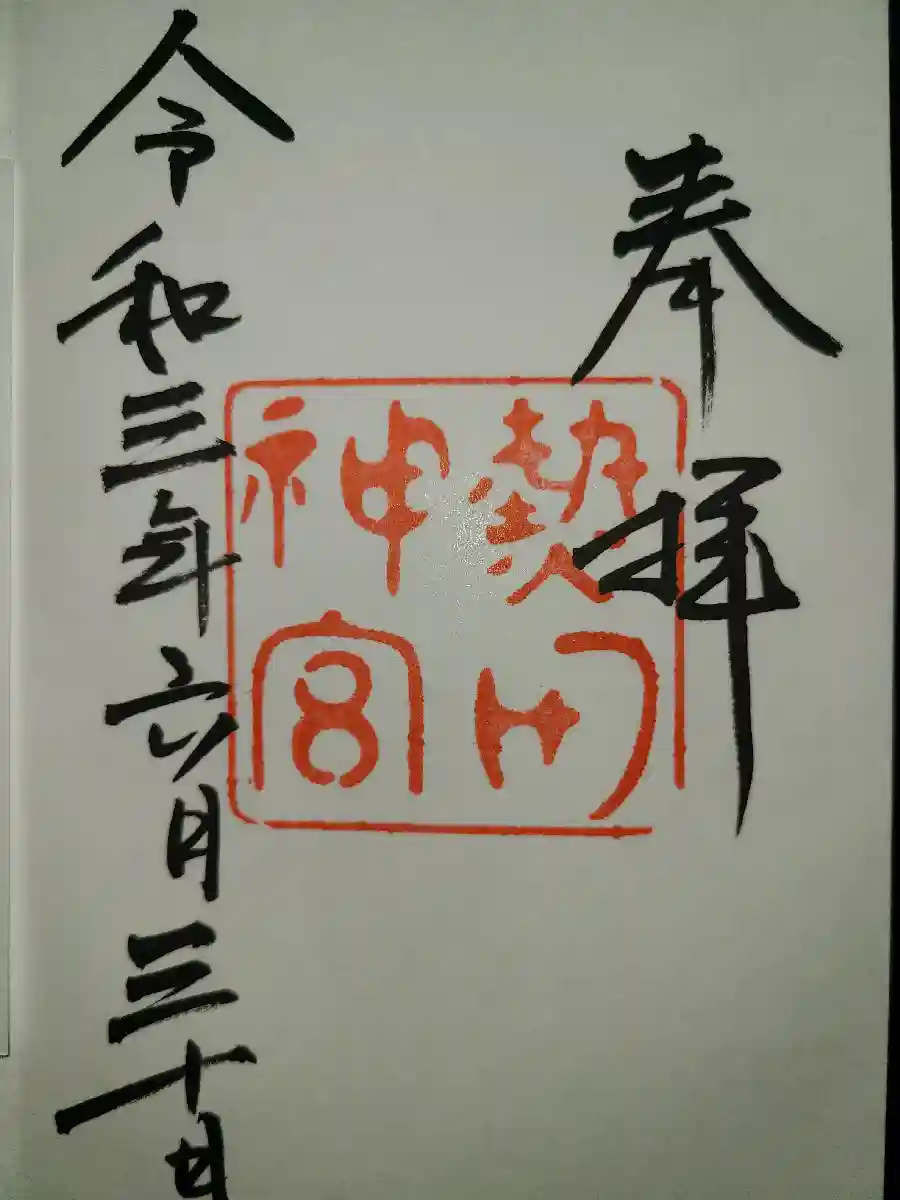 奉拝
熱田神宮
令和三年六月三十日